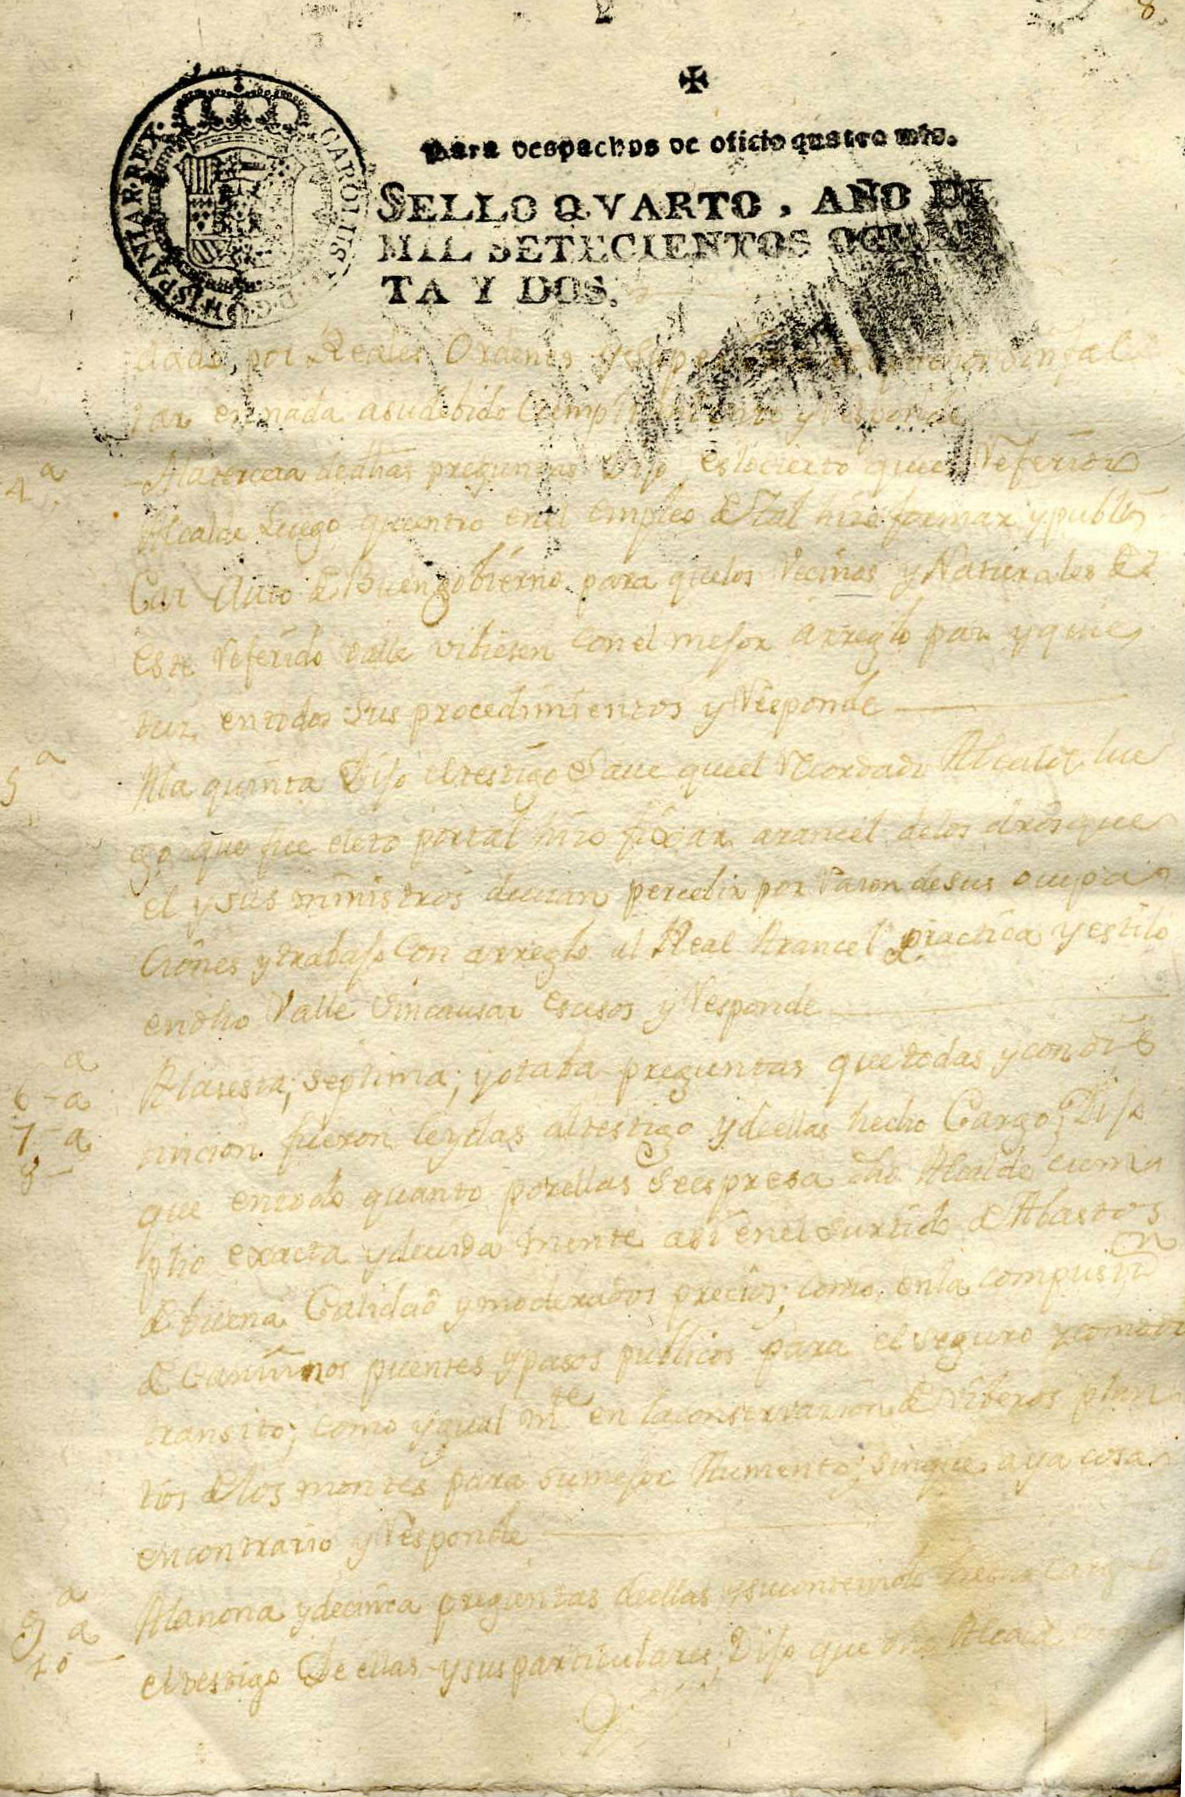 8
CAROLUS D. G. HISPANIAR. REX.
Para despachos de oficio quatro mrs.
SELLO QVARTO, AÑO DE
MIL SETECIENTOS OCHEN
TA Y DOS.
dadas, por Reales Ordenes y sin fal
tar en nada asudebido Cumplimiento y Responde
4ª Ala tercera delas preguntas Dijo, eslocierto quel Referido
Alcalde luego quentro enel empleo de tal hizo formar ypubli
Car Auto de Buen gobierno para quelos Vecinos y Naturales de
este Referido Valle vibiesen conel mejor arreglo paz yquie
tuz, entodos sus procedimientos y Responde
5ª Ala quinta Dijo eltestigo Save quel Recordado Alcalde lue
go que fue eleto portal hizo fixar arancel delos dros que
el y sus ministros devian percebir por Razon desus ocupa
ciones ytrabajo Con arreglo al Real Arancel practica yestilo
endho Valle Sincausar escesos y Responde
6-ª 7-ª 8- Alasesta, septima, yotaba preguntas quetodas ycondis
tincion fueron leydas altestigo ydeellas hecho Cargo, Dijo
que entodo quanto porellas Seespresa dho Alcalde cum
plio exacta ydevida mente asi enel surtido de Abastos
de buena Calidad ymoderados precios, como enla composizn
de Caminos puentes ypasos publicos para el seguro ycomodo
transito; como ygual mte en laconservazion de Viberos plan
tios delos montes para sumejor Aumento, sinque aya cosa
encontrario y Responde
9ª 10ª Alanona ydecima preguntas deellas ysucontenido hecho cargo
eltestigo de ellas ysusparticulares, Dijo que dho Alcalde